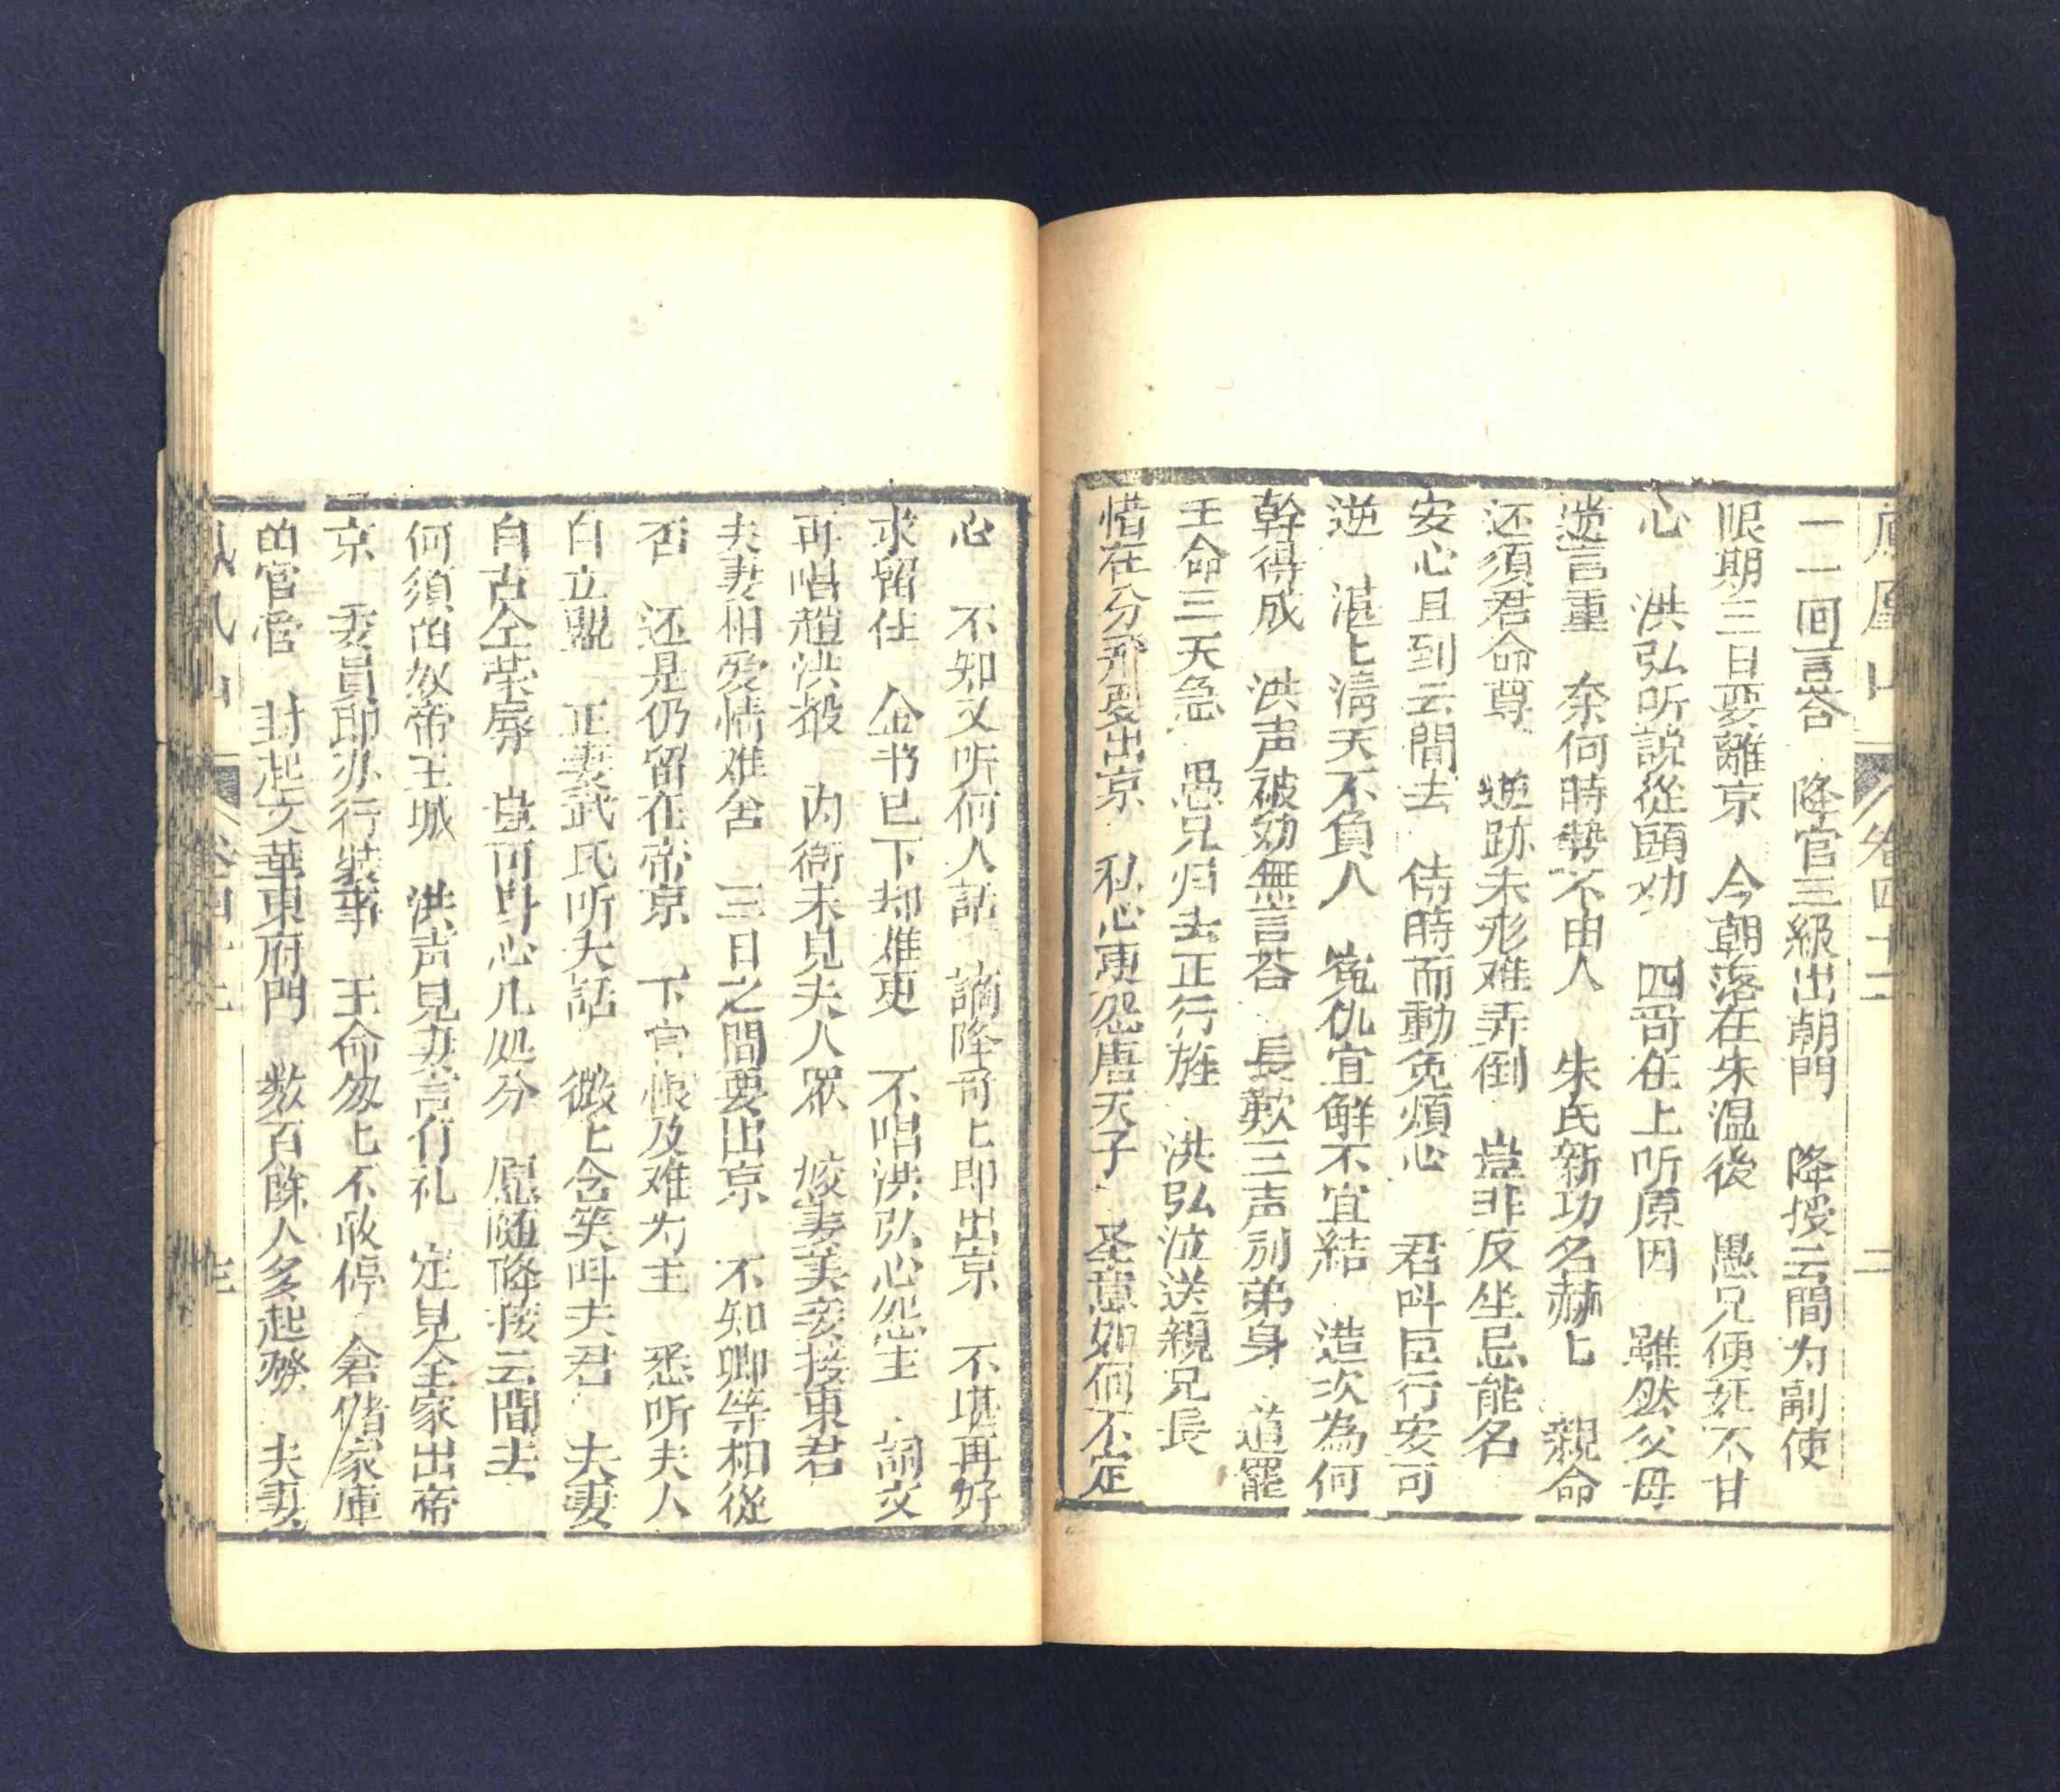 鳳凰山 卷四十二 二
一一回言答 降官三級出朝門 降授云間为副使
限期三日要離京 今朝落在朱温後 愚兄便死不甘
心 洪弘听説從頭劝 四哥在上听原因 雖然父母
遗言重 奈何時勢不由人 朱氏新功名赫匕 親命
还須君命尊 逆跡未形难弄倒 豈非反坐忌能名
安心且到云間去 待時而動免煩心 君叫臣行安可
逆 湛匕淸天不負人 寃仇宜觧不宜結 造次為何
幹得成 洪声被効無言荅 長歎三声别弟身 道罷
王命三天急 愚兄归去正行旌 洪弘泣送親兄長
惜在分飛要出京 私心更怨唐天子 圣意如何不定
心 不知又听何人話 謫降哥匕即出京 不堪再好
求留住 金书已下却难更 不唱洪弘心怨主 詞文
再唱趙洪殷 内衙未見夫人眾 姣妻美妾接東君
夫妻相爱情难舍 三日之間要出京 不知卿等相從
否 还是仍留在帝京 下官恨及难为主 悉听夫人
自立覶 正妻武氏听夫話 微匕含笑叫夫君 夫妻
自古仝荣辱 豈可身心几処分 愿随降授云間去
何須留奴帝王城 洪声見妻言有礼 定見全家出帝
京 委員即办行裝事 王命匆匕不敢停 倉储家庫
留官管 封起文華東府門 数百餘人多起發 夫妻
卷四十二